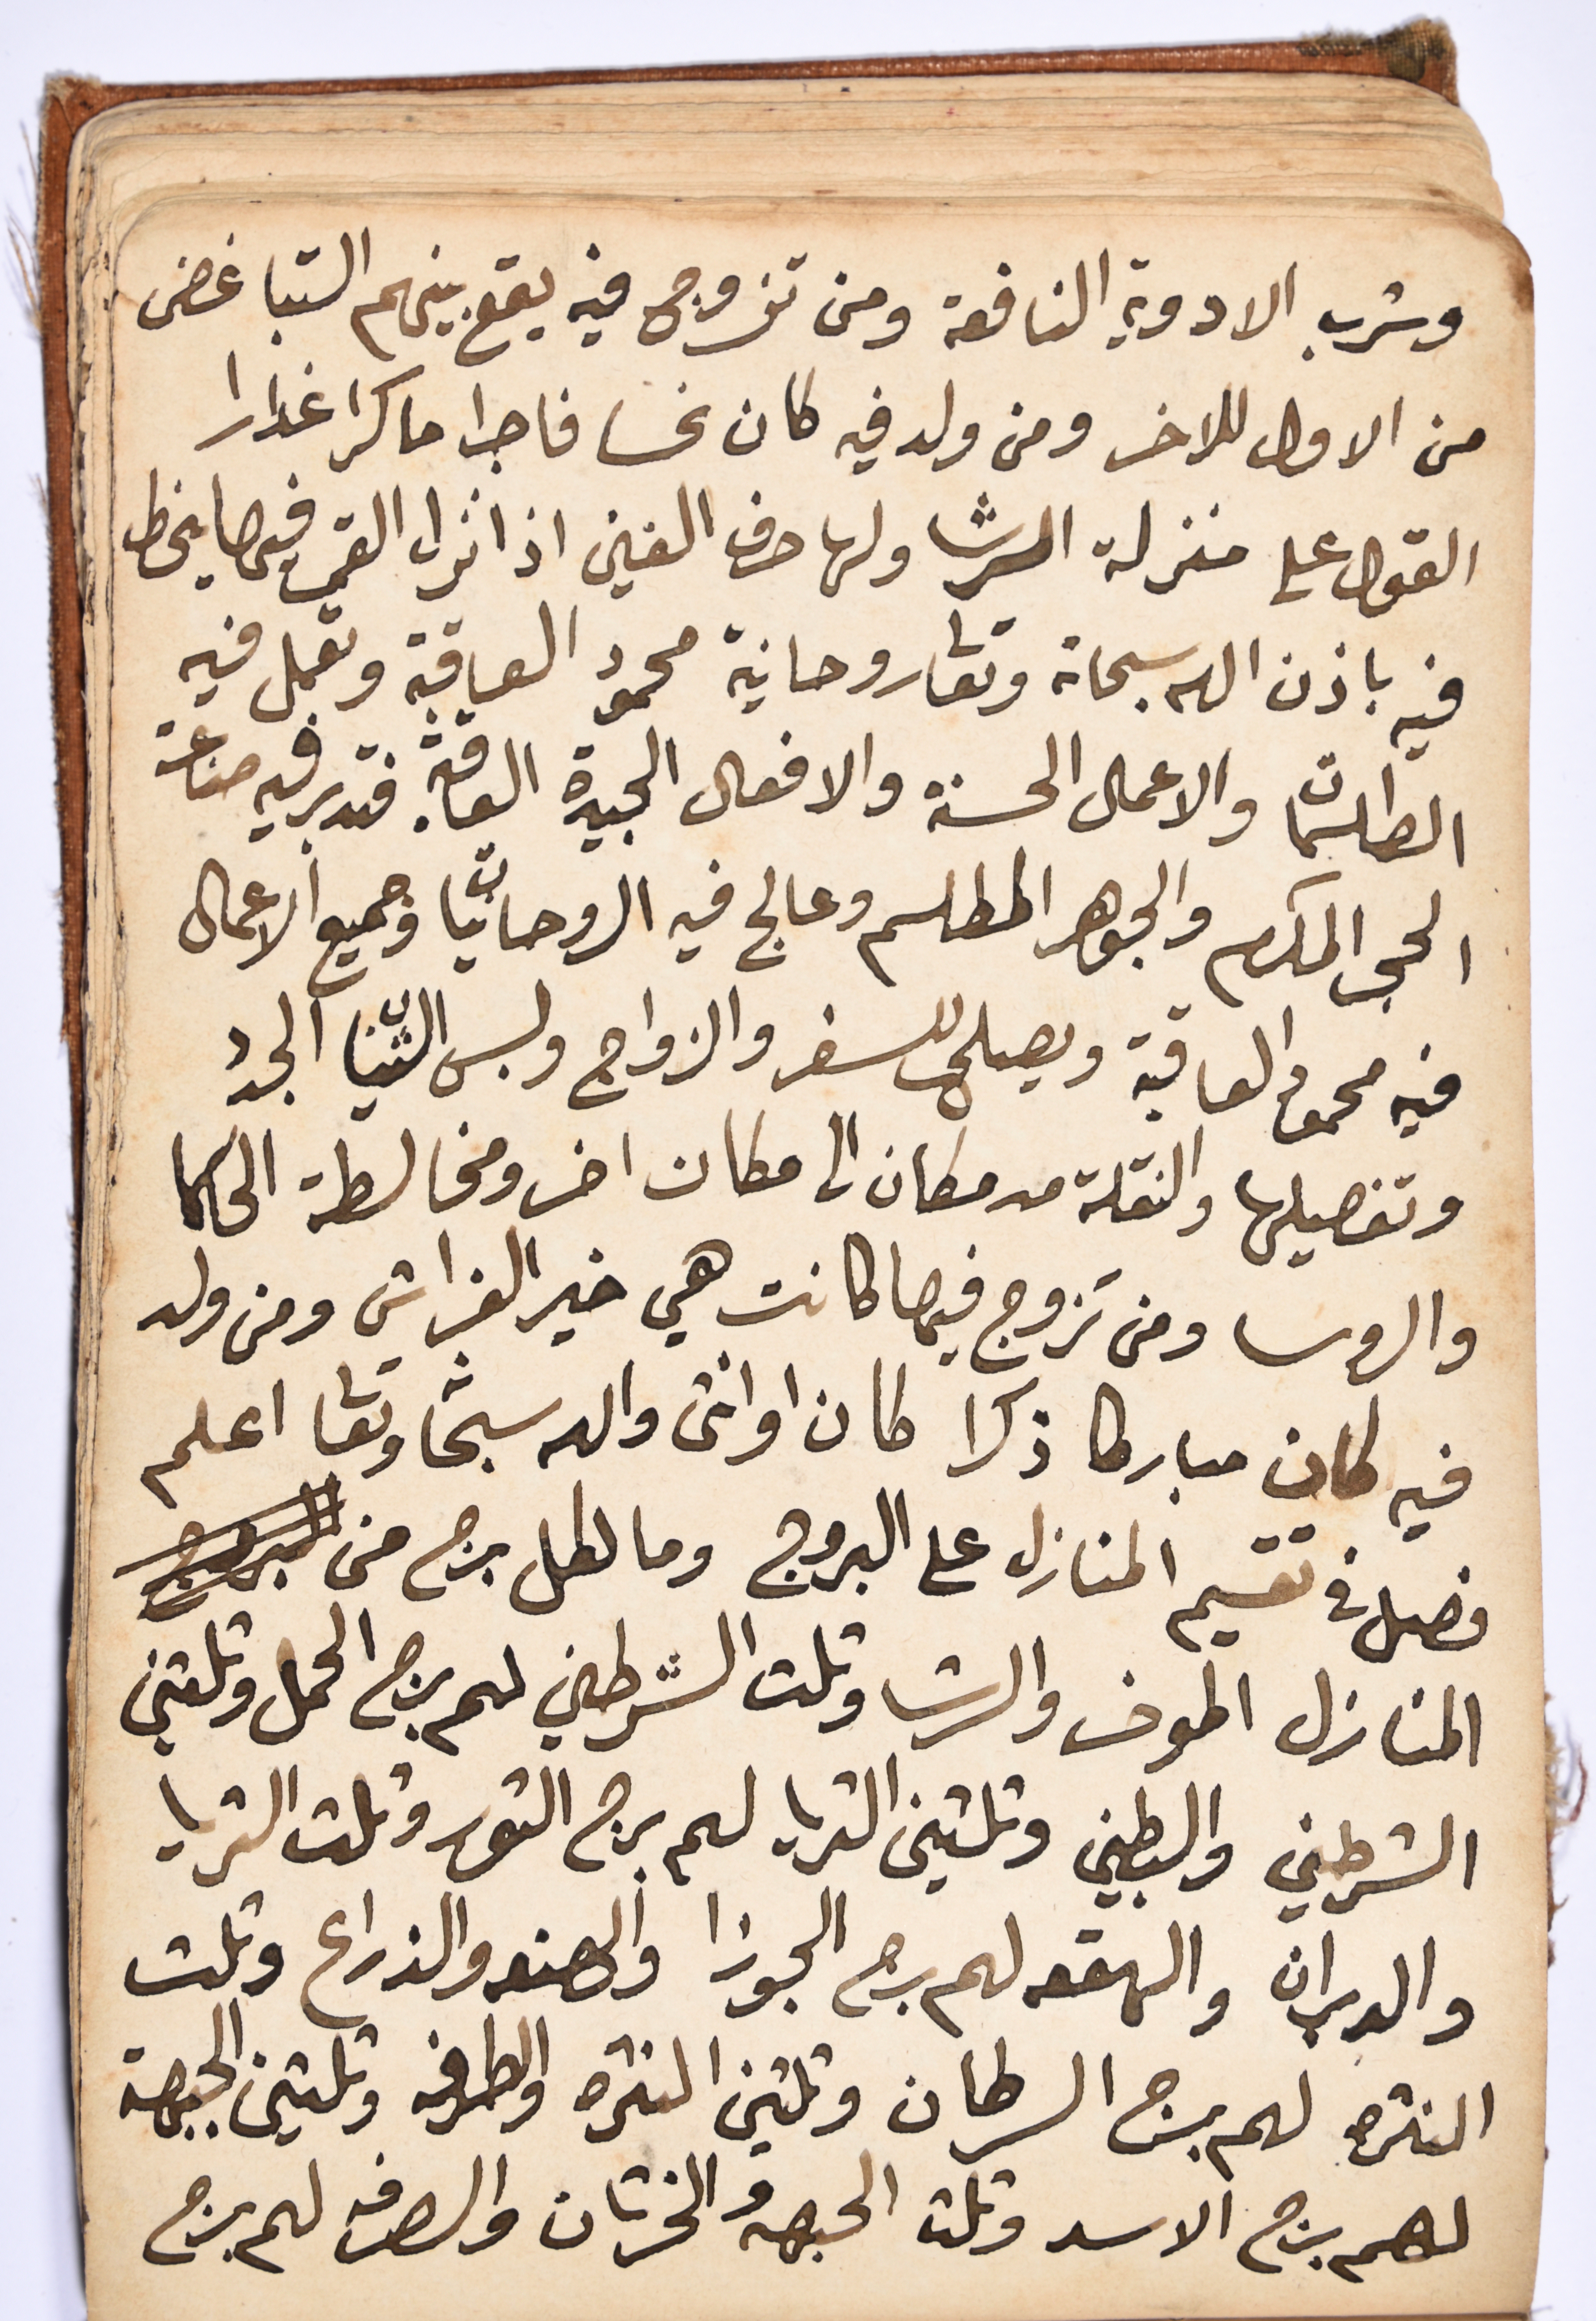 وشرب الادوية النافعة ومن تزوج فيه يقع بينهم التباغض
من الاول للاخر ومن ولد فيه كان نحسا فاجرا ماكرا غدارا
القول على منزلة الرشا ولها حرف الغين اذا نزل القمر فيها ينحط
فيه باذن الله سبحانه وتعا روحانية محمود العاقبة وتعمل فيه
الطلسمات والاعمال الحسنة والافعال الجيدة الفائقة فتدبر فيه صناعة
الحجر المكرم والجوهر المطلسم وعالج فيه الروحانيات وجميع الاعمال
فيه محمود العاقبة ويصلح للسفر والزواج ولبس الثياب الجدد
وتفصيلها والنقلة من مكان الى مكان اخر ومخالطة الحكما
والروسا ومن تزوج فيها كانت هي خير الفراش ومن ولد
فيه كان مباركا ذكرا كان او انثى والله سبحانه وتعا اعلم
فصل في تقسيم المنازل على البروج وما لكل برج من البروج
المنازل الموخر والرشا وثلث الشرطين لهم برج الحمل وثلثين
الشرطين والبطين وثلثين الثريا لهم برج الثور وثلث الثريا
والدبران والهقعه لهم برج الجوزا والهنعه والذراع وثلث
النثره لهم برج السرطان وثلثين النثره والطرفه وثلثين الجبهة
لهم برج الاسد وثلث الجبهه والخرتان والصرفه لهم برج